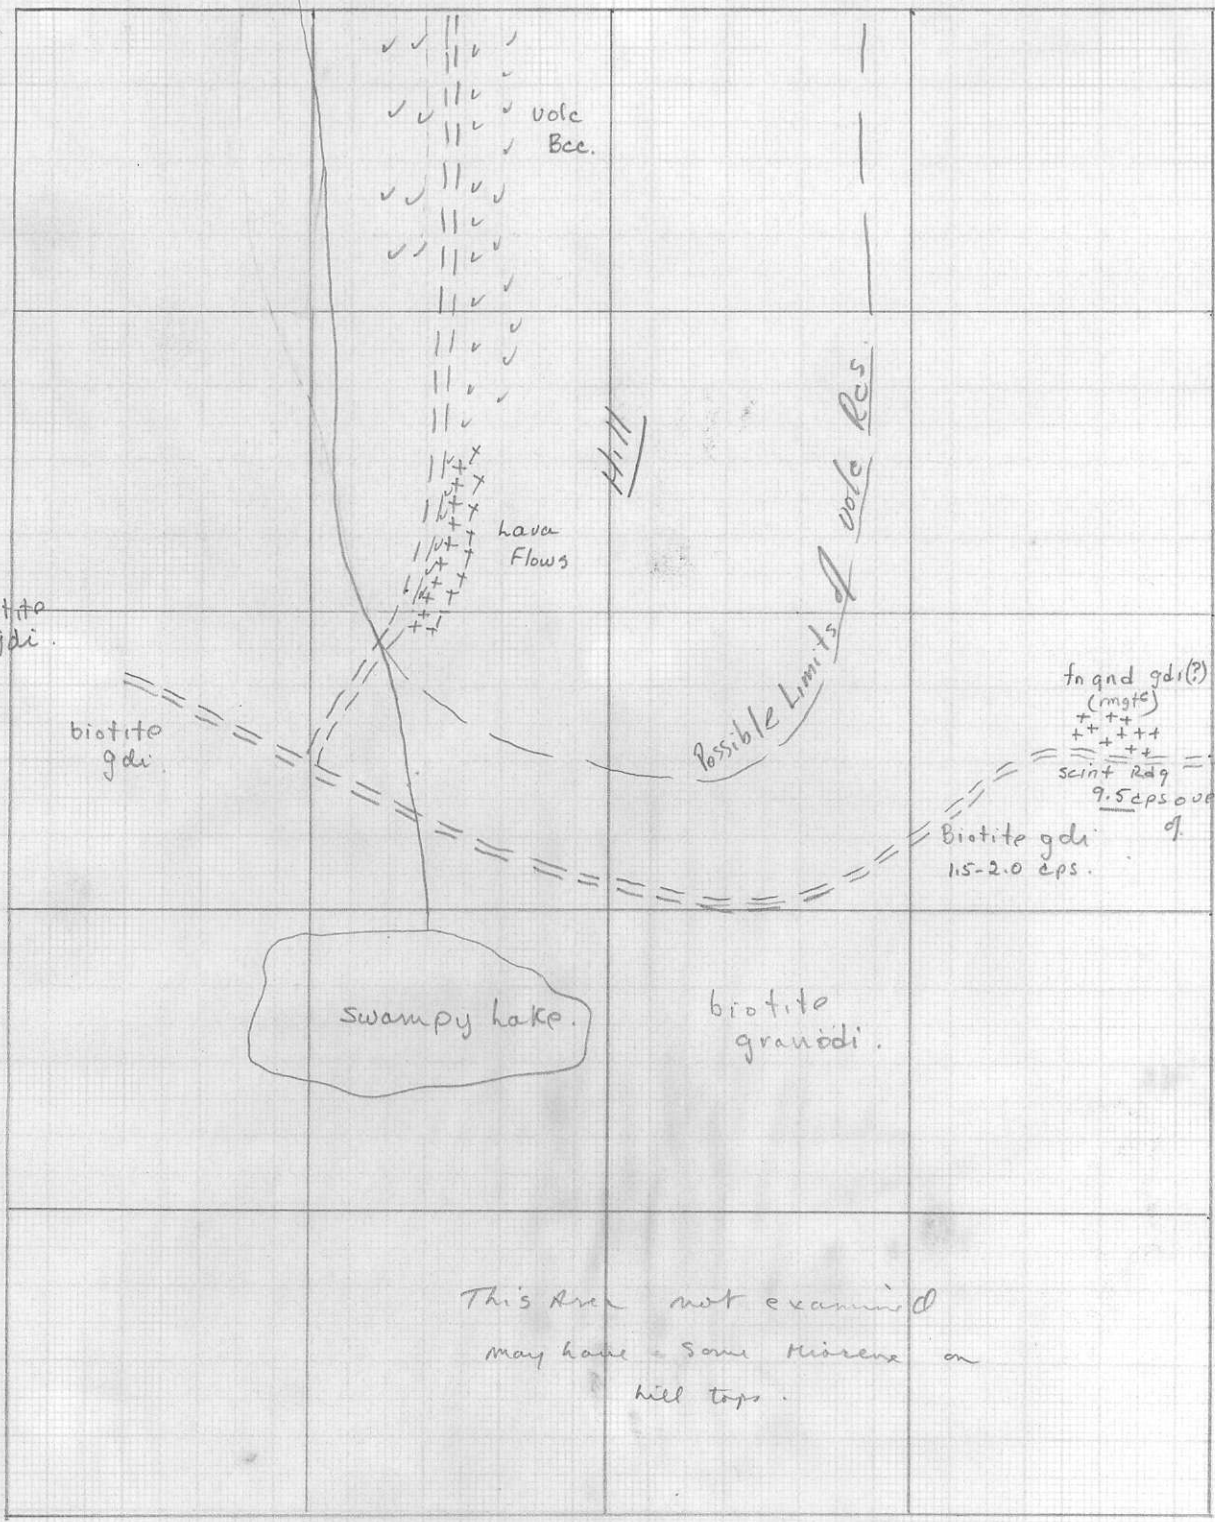 volc
Bcc.
Hill
Possible Limits of volc Rcs.
Lava
Flows
gdi.
biotite
gdi
fn gnd gdi(?)
(mgtc)
scint Rdg
9.5 cps ove
of
Biotite gdi
1.5-2.0 cps.
Swampy Lake.
biotite
granodi.
This Area not examined
may have some Miocene on
hill tops.